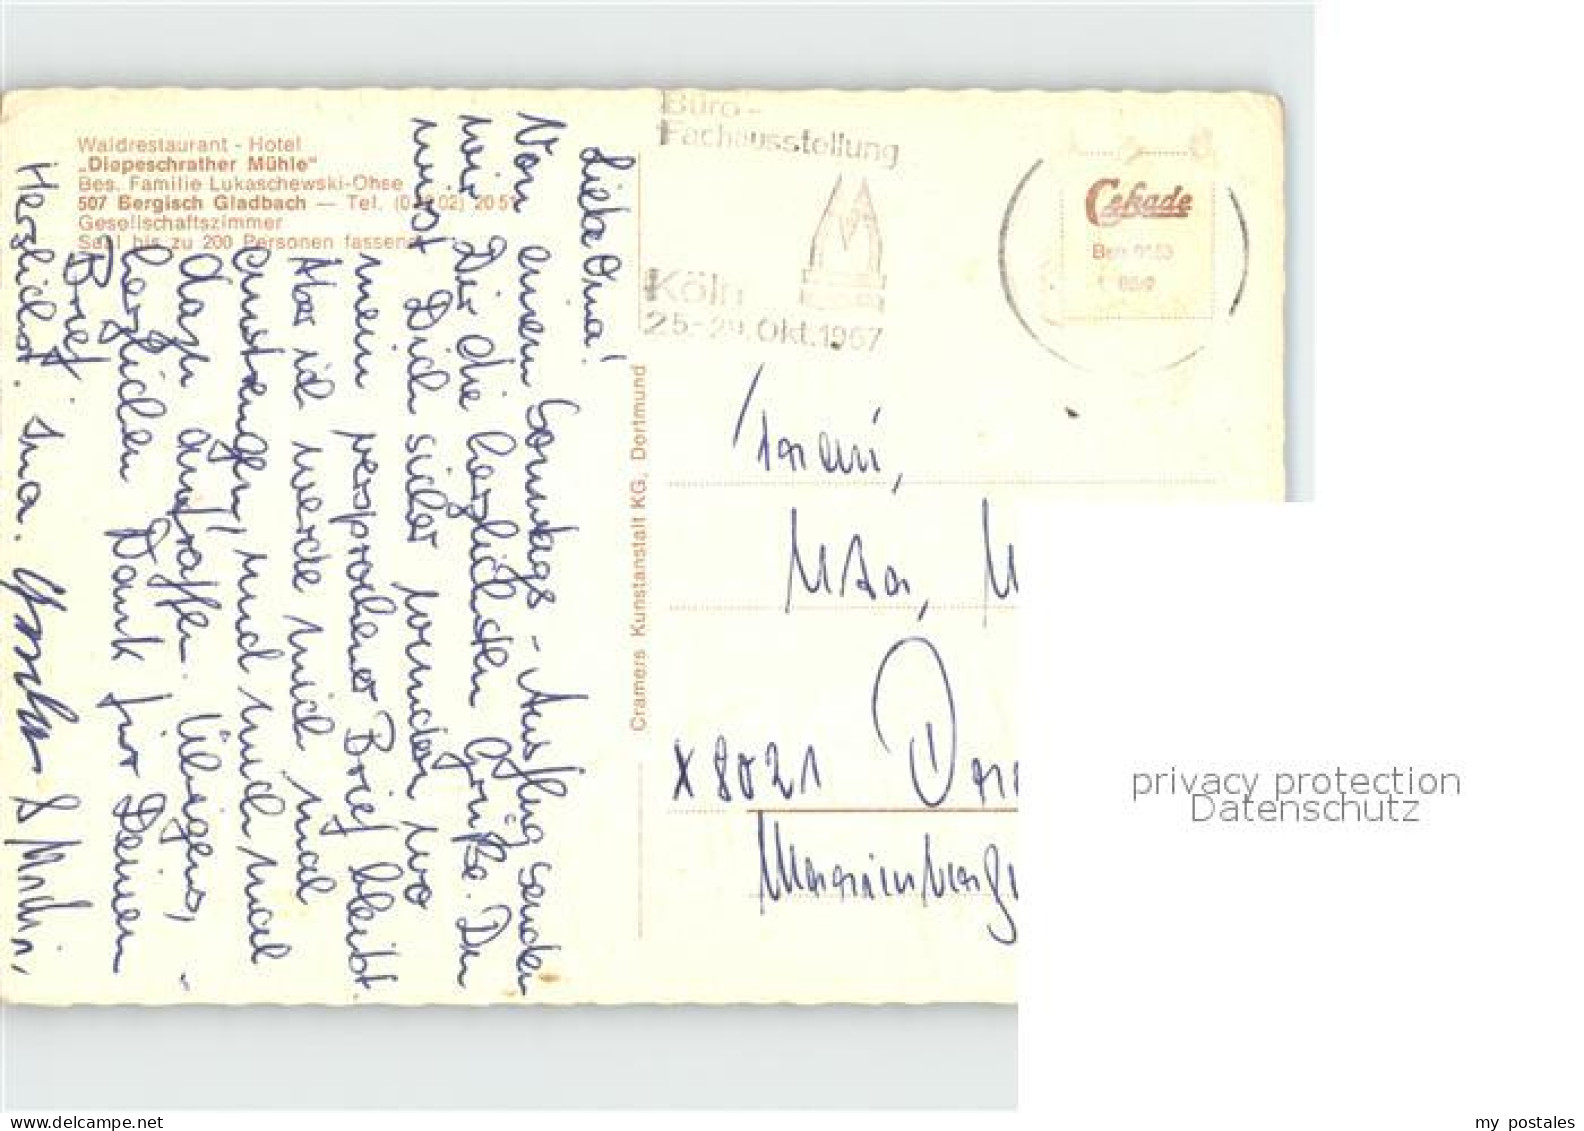 Waldrestaurant - Hotel
„Diepeschrather Mühle“
Bes. Familie Lukaschewski-Ohse
507 Bergisch Gladbach — Tel. (0 22 02) 20 51
Gesellschaftszimmer
Saal bis zu 200 Personen fassend
Liebe Oma!
Von einem Sonntags-Ausflug senden
wir Dir die herzlichsten Grüße. Du
wirst Dich sicher wundern wo
mein versprochener Brief bleibt.
Aber ich werde mich mal
anstrengen, und mich mal
dazu aufraffen. Übrigens,
herzlichen Dank für Deinen
Brief.
Herzlichst.
Cramers Kunstanstalt KG, Dortmund
Büro-
Fachausstellung
Köln
25.-29. Okt. 1967
Cekade
X 8021
privacy protection
Datenschutz
my postales